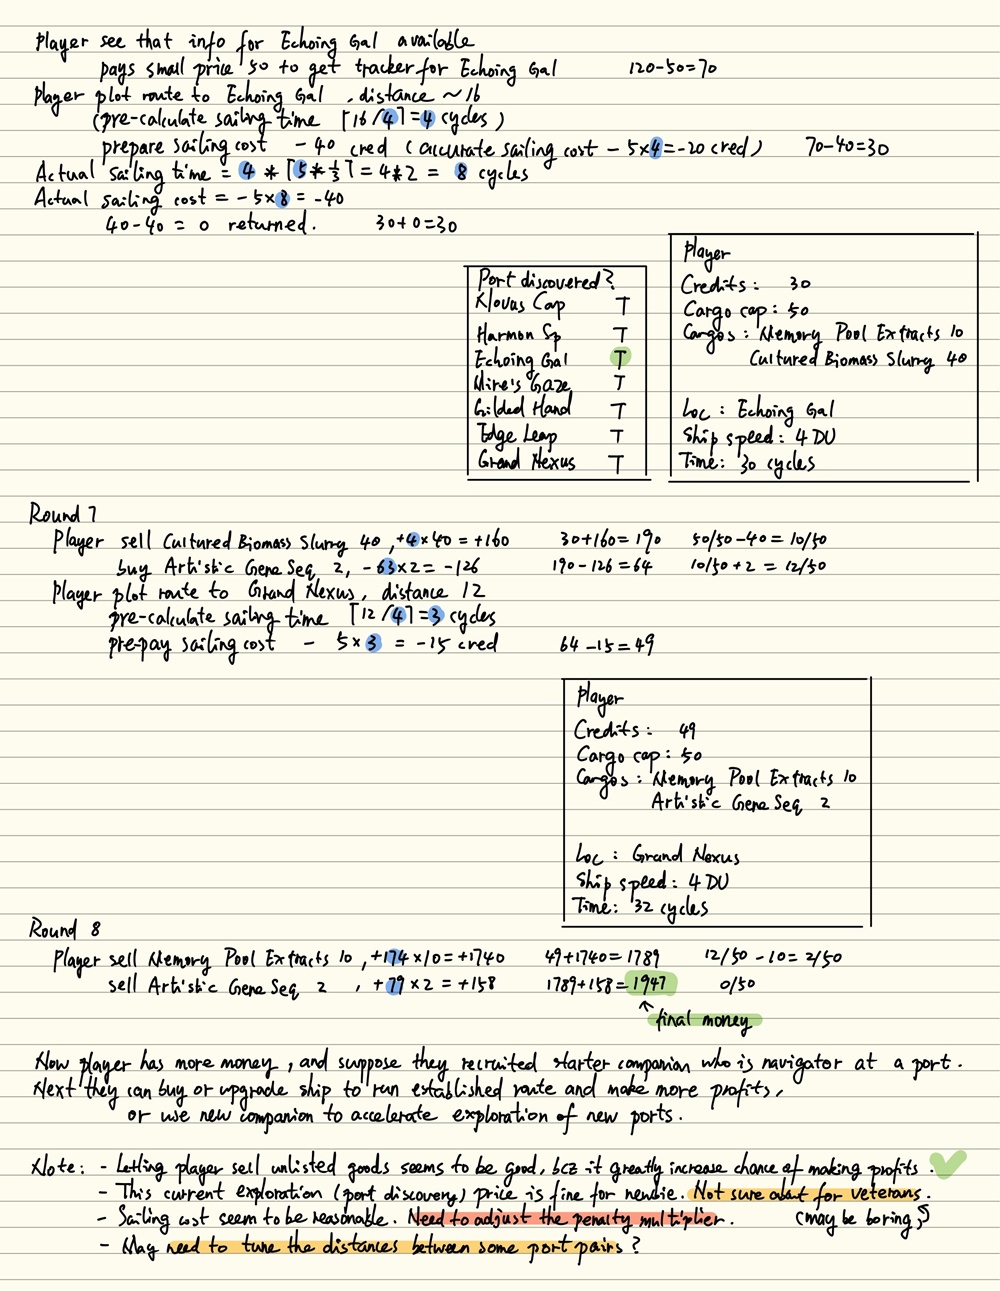 Player see that info for Echoing Gal available
pays small price 50 to get tracker for Echoing Gal 120-50=70
Player plot route to Echoing Gal , distance ~16
(pre-calculate sailing time ⌈16/4⌉=4 cycles)
prepare sailing cost - 40 cred (accurate sailing cost - 5×4=-20 cred) 70-40=30
Actual sailing time = 4 * ⌈5*⅓⌉ = 4*2 = 8 cycles
Actual sailing cost = -5×8 = -40
40-40 = 0 returned. 30+0=30
Port discovered?
Klovus Cap T
Harmon Sp T
Echoing Gal T
Mire's Gaze T
Gilded Hand T
Edge Leap T
Grand Nexus T
Player
Credits: 30
Cargo cap: 50
Cargos: Memory Pool Extracts 10
Cultured Biomass Slurry 40
Loc: Echoing Gal
Ship speed: 4 DU
Time: 30 cycles
Round 7
Player sell Cultured Biomass Slurry 40, +4×40 = +160 30+160=190 50/50-40=10/50
buy Artistic Gene Seq 2, -63×2=-126 190-126=64 10/50+2=12/50
Player plot route to Grand Nexus, distance 12
pre-calculate sailing time ⌈12/4⌉=3 cycles
pre-pay sailing cost - 5×3 = -15 cred 64-15=49
Player
Credits: 49
Cargo cap: 50
Cargos: Memory Pool Extracts 10
Artistic Gene Seq 2
Loc: Grand Nexus
Ship speed: 4 DU
Time: 32 cycles
Round 8
Player sell Memory Pool Extracts 10, +174×10=+1740 49+1740=1789 12/50-10=2/50
sell Artistic Gene Seq 2, +79×2=+158 1789+158=1947 0/50
↑ final money
Now player has more money, and suppose they recruited starter companion who is navigator at a port.
Next they can buy or upgrade ship to run established route and make more profits,
or use new companion to accelerate exploration of new ports.
Note: - Letting player sell unlisted goods seems to be good, bcz it greatly increase chance of making profits.
- This current exploration (port discovery) price is fine for newbie. Not sure about for veterans.
- Sailing cost seem to be reasonable. Need to adjust the penalty multiplier. (may be boring)
- May need to tune the distances between some port pairs?